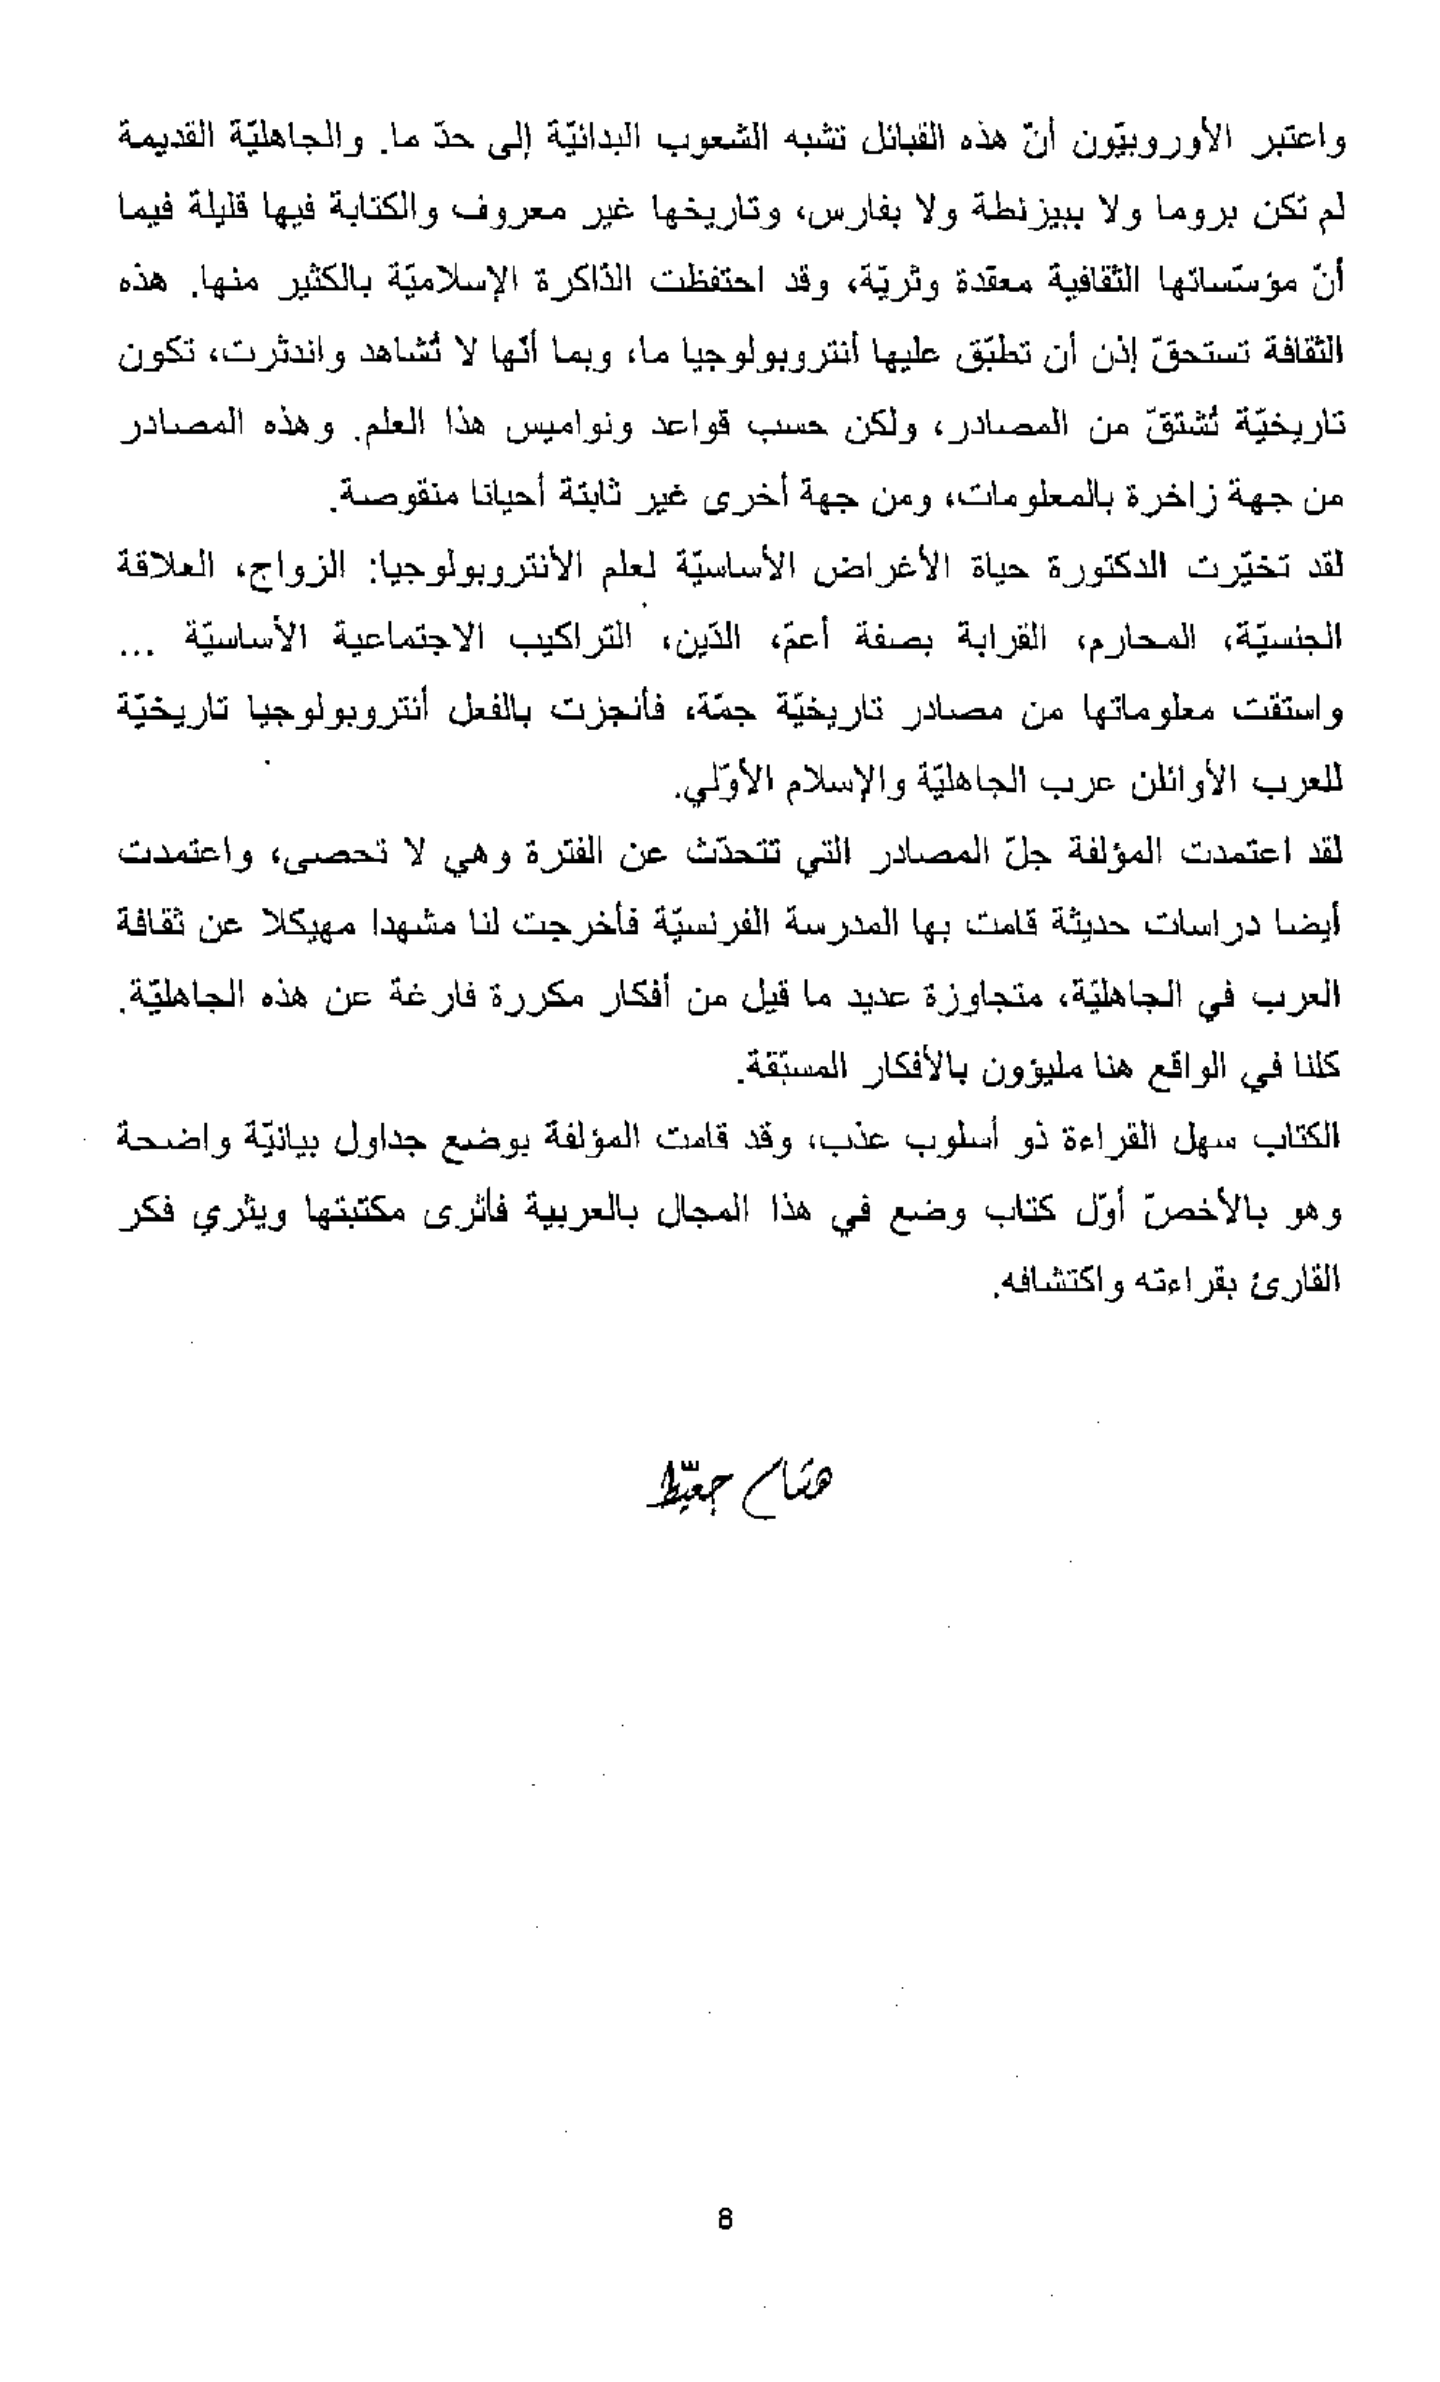 واعتبر الأوروبيّون أنّ هذه القبائل تشبه الشعوب البدائيّة إلى حدّ ما. والجاهليّة القديمة
لم تكن بروما ولا ببيزنطة ولا بفارس، وتاريخها غير معروف والكتابة فيها قليلة فيما
أنّ مؤسّساتها الثقافية معقدة وثريّة، وقد احتفظت الذّاكرة الإسلاميّة بالكثير منها. هذه
الثقافة تستحقّ إذن أن تطبّق عليها أنتروبولوجيا ما، وبما أنّها لا تُشاهد واندثرت، تكون
تاريخيّة تُشتقّ من المصادر، ولكن حسب قواعد ونواميس هذا العلم. وهذه المصادر
من جهة زاخرة بالمعلومات، ومن جهة أخرى غير ثابتة أحيانا منقوصة.
لقد تخيّرت الدكتورة حياة الأغراض الأساسيّة لعلم الأنتروبولوجيا: الزواج، العلاقة
الجنسيّة، المحارم، القرابة بصفة أعمّ، الدّين، التراكيب الاجتماعية الأساسيّة ...
واستقت معلوماتها من مصادر تاريخيّة جمّة، فأنجزت بالفعل أنتروبولوجيا تاريخيّة
للعرب الأوائلن عرب الجاهليّة والإسلام الأوّلي.
لقد اعتمدت المؤلفة جلّ المصادر التي تتحدّث عن الفترة وهي لا تحصى، واعتمدت
أيضا دراسات حديثة قامت بها المدرسة الفرنسيّة فأخرجت لنا مشهدا مهيكلا عن ثقافة
العرب في الجاهليّة، متجاوزة عديد ما قيل من أفكار مكررة فارغة عن هذه الجاهليّة.
كلنا في الواقع هنا مليؤون بالأفكار المسبّقة.
الكتاب سهل القراءة ذو أسلوب عذب، وقد قامت المؤلفة بوضع جداول بيانيّة واضحة
وهو بالأخصّ أوّل كتاب وضع في هذا المجال بالعربية فأثرى مكتبتها ويثري فكر
القارئ بقراءته واكتشافه.
هشام جعيّط
8